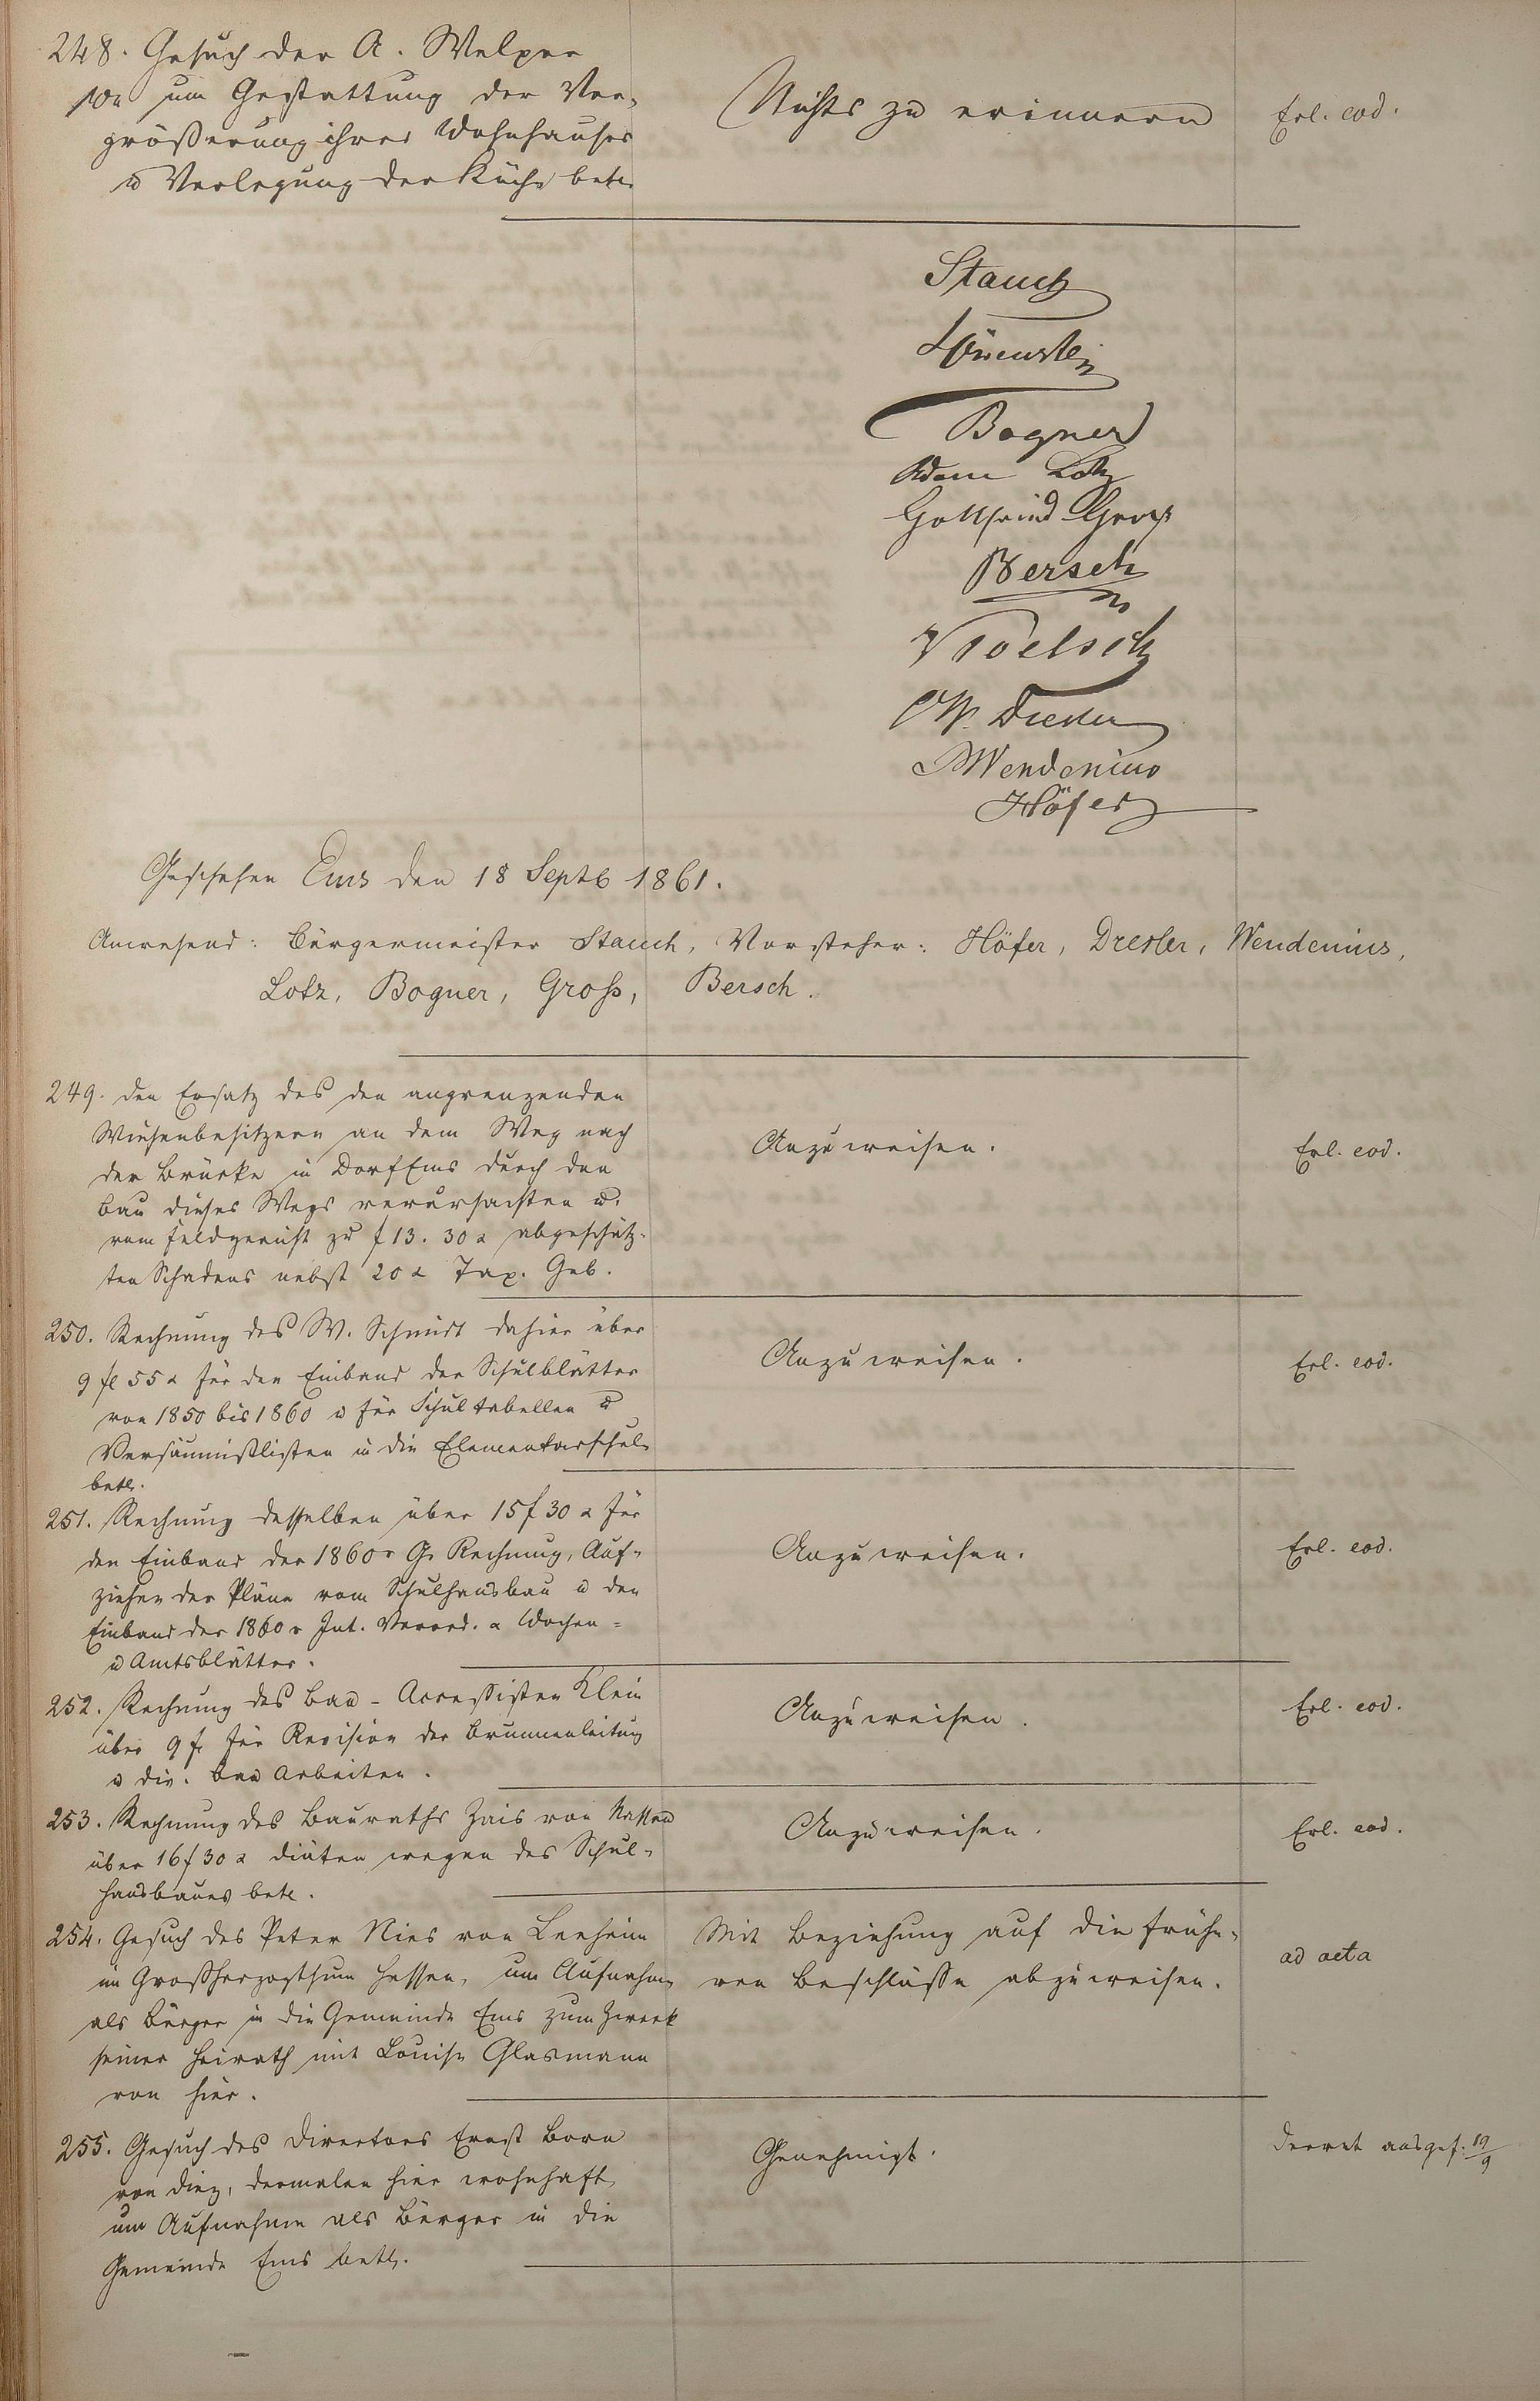 248. Gesuch der A. Welper
um Gestattung der Ver-
größerung ihres Wohnhauses
u Verlegung der Küche betr.
Nichts zu erinnern
Erl. eod.
Stauch
Bogner
Adam Lotz
Gottfried Groß
Bersch
W. Dresler
Wendenius
Höfer
Geschehen Ems den 18 Septb 1861.
Anwesend: Bürgermeister Stauch, Vorsteher: Höfer, Dresler, Wendenius,
Lotz, Bogner, Groß, Bersch.
249. den Ersatz des den angrenzenden
Wiesenbesitzern an dem Weg nach
der Brücke in DorfEms durch den
Bau dieses Wegs verursachten u.
vom Feldgericht zu f 13. 30 x abgeschätz-
ten Schadens nebst 20 x Tax. Geb.
Anzuweisen.
Erl. eod.
250. Rechnung des W. Schmidt dahier über
9 fl 55 x für den Einband der Schulblätter
von 1850 bis 1860 u für Schultabellen u
Versäumnißlisten in die Elementarschule
betr.
Anzuweisen.
Erl. eod.
251. Rechnung desselben über 15 f 30 x für
den Einband der 1860r G. Rechnung, Auf-
ziehen der Pläne vom Schulhausbau u den
Einband der 1860r Int. Verord. & Wochen-
u Amtsblätter.
Anzuweisen.
Erl. eod.
252. Rechnung des Bau-Accessisten Klein
über 9 f. für Revision der Brunnenleitung
u div. Bau Arbeiten.
Anzuweisen.
Erl. eod.
253. Rechnung des Bauraths Zais von Nassau
über 16 f 30 x Diäten wegen des Schul-
hausbaues betr.
Anzuweisen.
Erl. eod.
254. Gesuch des Peter Nies von Leeheim
im Großherzogthum Hessen, um Aufnahme
als Bürger in die Gemeinde Ems zum Zweck
seiner Heirath mit Louise Glasmann
von hier.
Mit Beziehung auf die frühe-
ren Beschlüsse abzuweisen.
ad acta
255. Gesuch des Directors Ernst Born
von Diez, dermalen hier wohnhaft,
um Aufnahme als Bürger in die
Gemeinde Ems betr.
Genehmigt.
Decret ausgef. 19/9